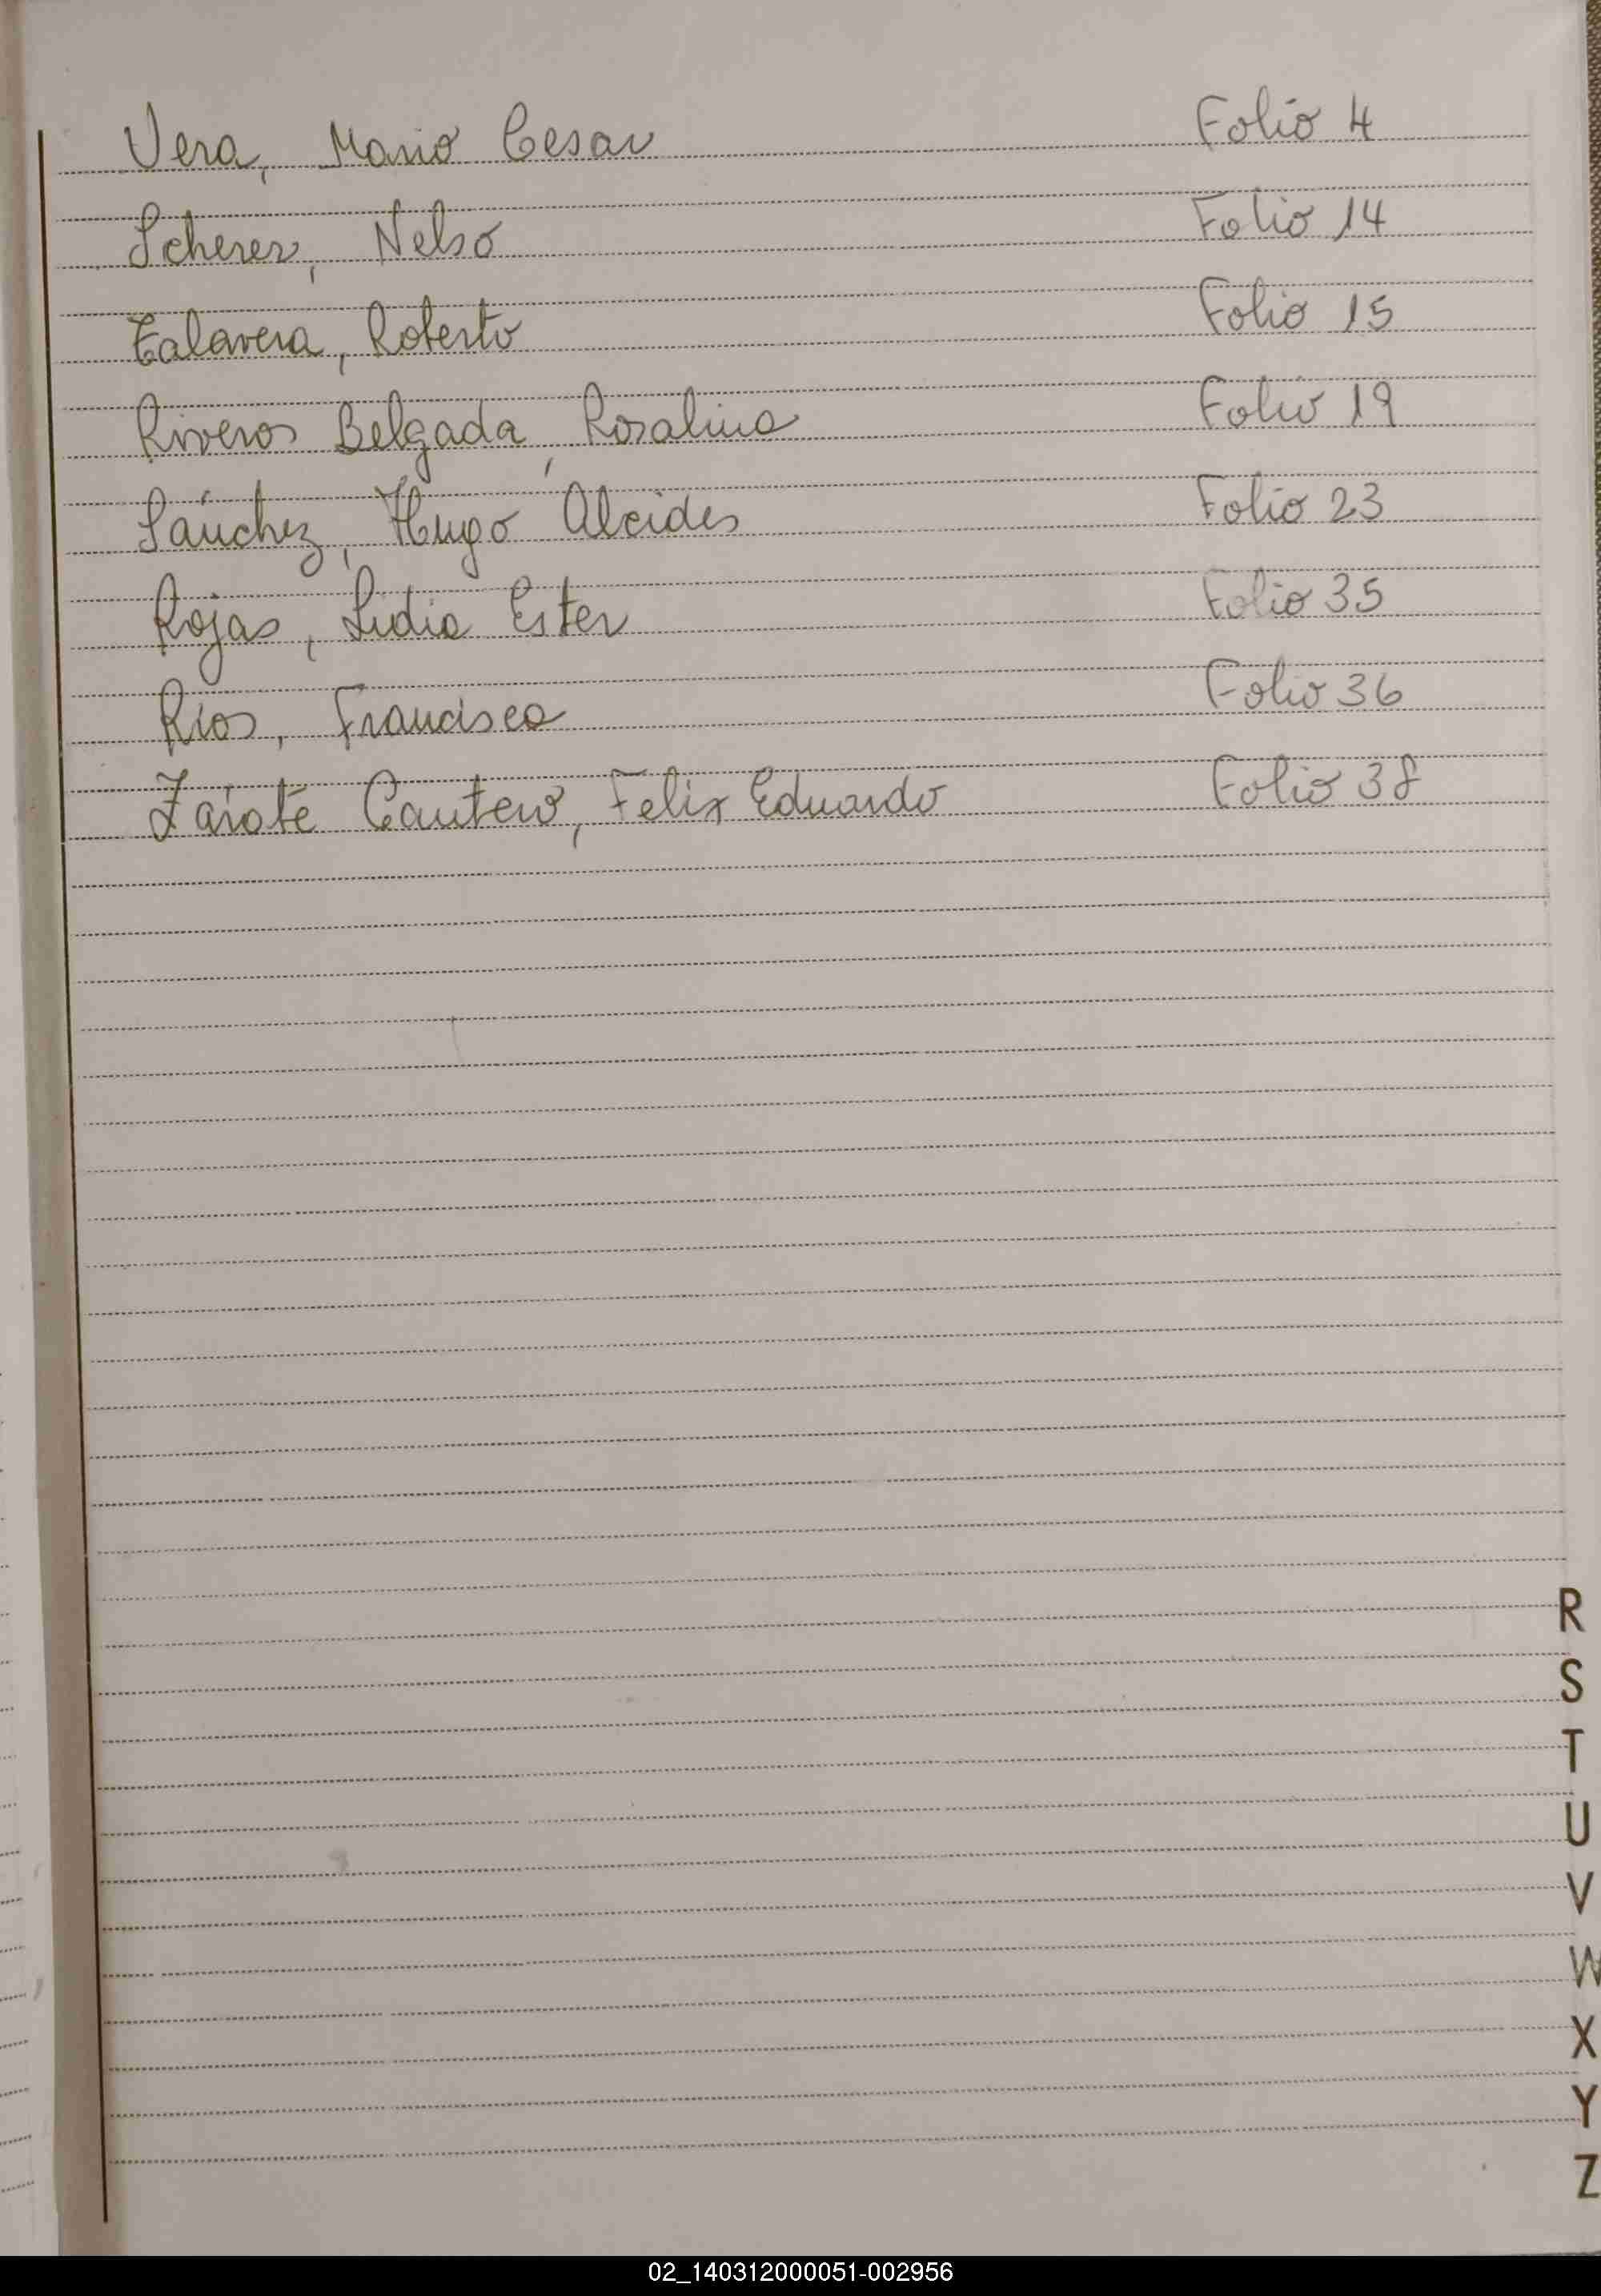 Vera, Mario Cesar Folio 4
Scherer, Nelso Folio 14
Talavera, Roberto Folio 15
Riveros Belgada, Rosalina Folio 19
Sánchez, Hugo Alcides Folio 23
Rojas, Lidia Ester Folio 35
Ríos, Francisco Folio 36
Zarate Cantero, Felix Eduardo Folio 38
R
S
T
U
V
W
X
Y
Z
02_140312000051-002956